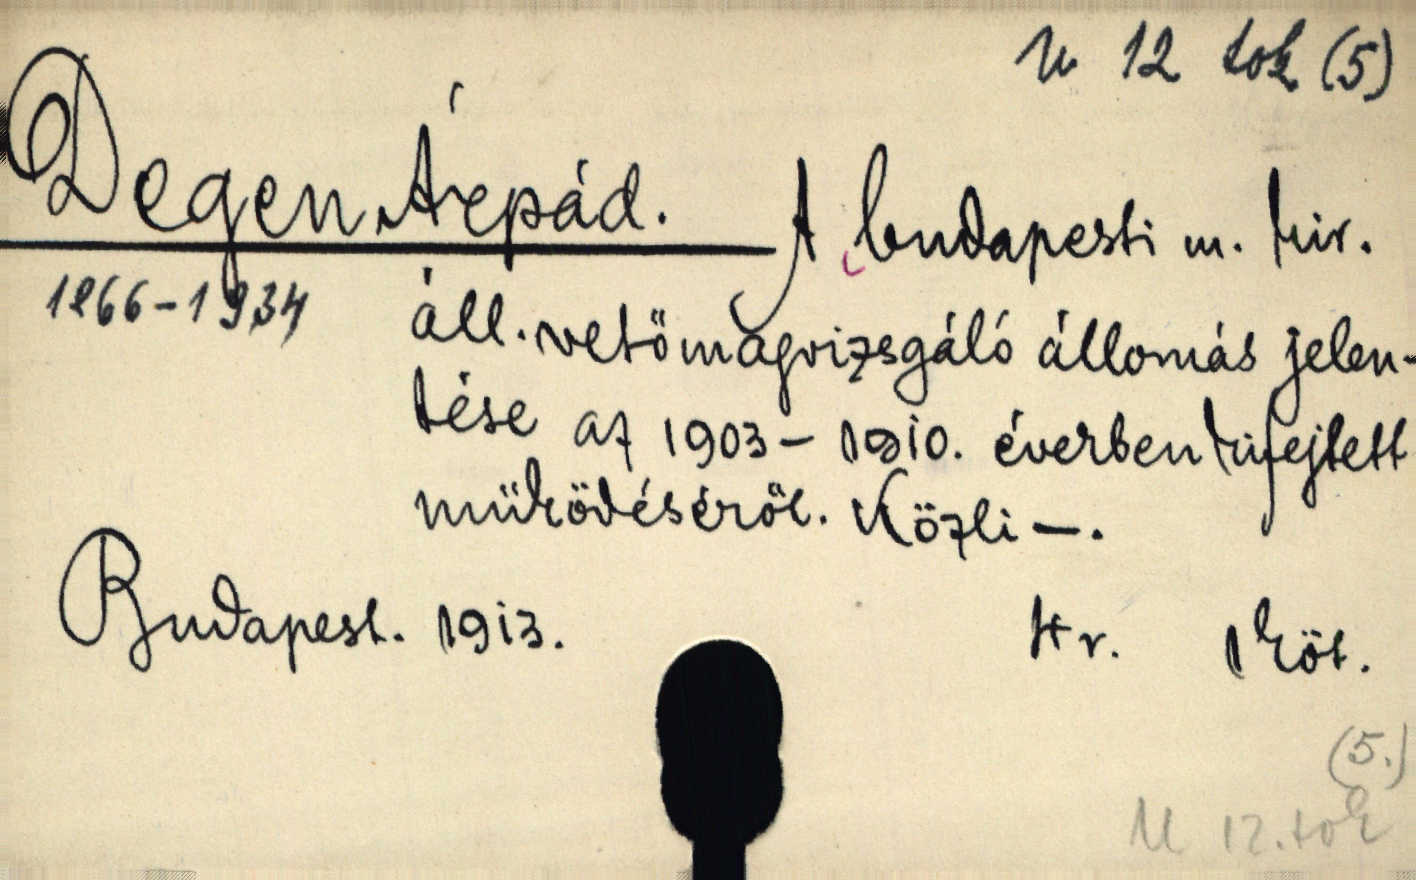 M 12 tok (5)
Degen Árpád. A budapesti m. kir.
1866-1934 áll. vetőmagvizsgáló állomás jelen-
tése az 1903–1910. években kifejtett
működéséről. Közli —.
Budapest. 1913. 4r. 1 köt.
(5.)
M 12. tok